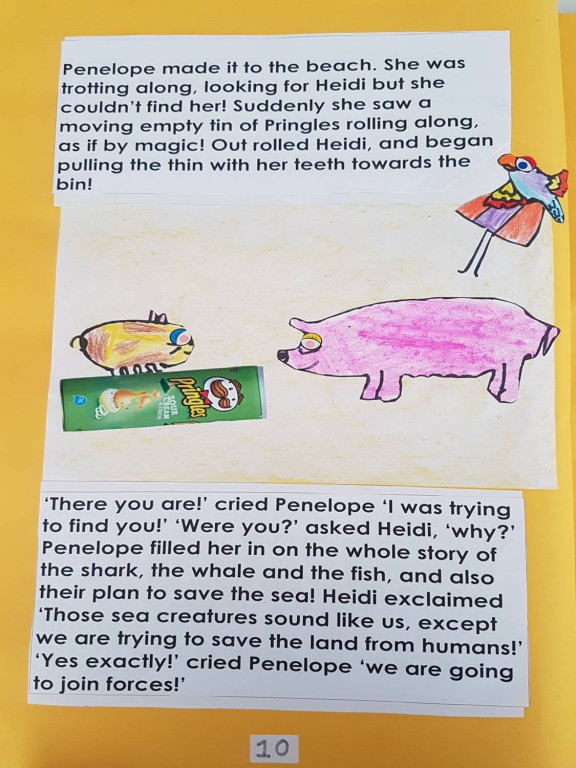 Penelope made it to the beach. She was
trotting along, looking for Heidi but she
couldn't find her! Suddenly she saw a
moving empty tin of Pringles rolling along,
as if by magic! Out rolled Heidi, and began
pulling the thin with her teeth towards the
bin!
Pringles
SOUR
CREAM
& Onion
'There you are!' cried Penelope 'I was trying
to find you!' 'Were you?' asked Heidi, 'why?'
Penelope filled her in on the whole story of
the shark, the whale and the fish, and also
their plan to save the sea! Heidi exclaimed
'Those sea creatures sound like us, except
we are trying to save the land from humans!'
'Yes exactly!' cried Penelope 'we are going
to join forces!'
10